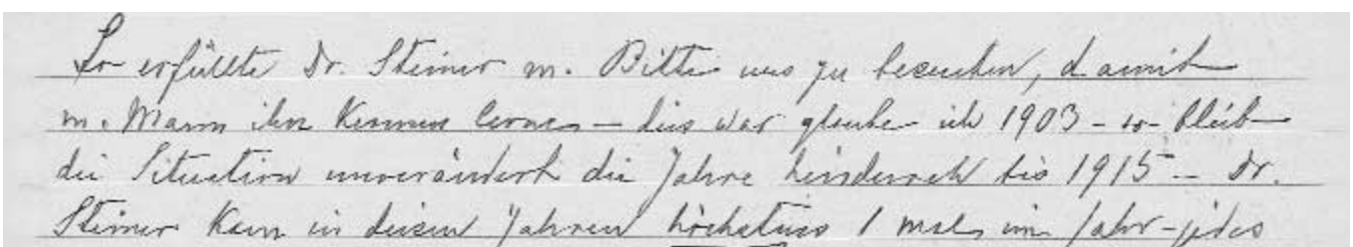 So erfüllte Dr. Steiner m. Bitte uns zu besuchen, damit
m. Mann ihn kennen lerne – dies war glaube ich 1903 – so blieb
die Situation unverändert die Jahre hindurch bis 1915 – Dr.
Steiner kam in diesen Jahren höchstens 1 mal im Jahr – jedes